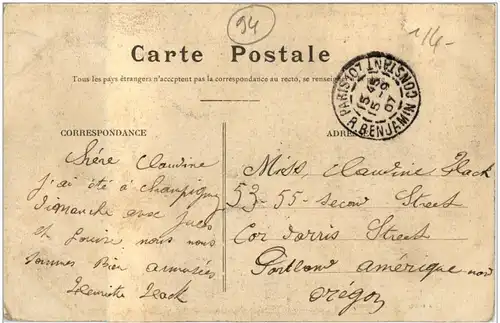 94
1/4-
Carte Postale
Tous les pays étrangers n'acceptent pas la correspondance au recto, se renseign
CORRESPONDANCE
ADRES
PARIS 107 R. BENJAMIN CONSTANT
15 45
15-9
07
Chére Claudine
j'ai été à Champigny
Dimanche avec Jules
et Louise, nous nous
sommes Bien amusées
Henriette Hack
Miss, Claudine Hack
53-55-secon Street
Cor Harris Street
Portland amérique nor
Orégon